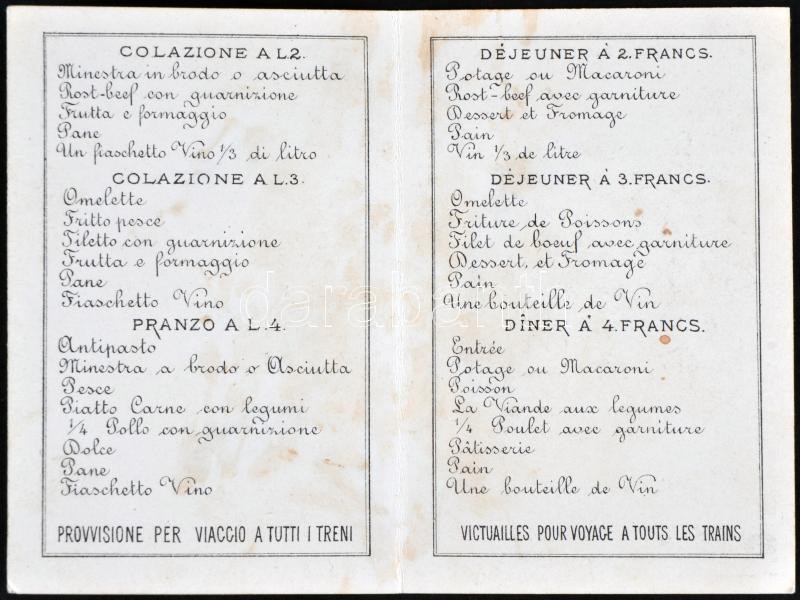 COLAZIONE A L.2.
Minestra in brodo o asciutta
Rost-beef con guarnizione
Frutta e formaggio
Pane
Un fiaschetto Vino 1/3 di litro
COLAZIONE A L.3.
Omelette
Fritto pesce
Filetto con guarnizione
Frutta e formaggio
Pane
Fiaschetto Vino
PRANZO A L.4.
Antipasto
Minestra a brodo o Asciutta
Pesce
Piatto Carne con legumi
1/4 Pollo con guarnizione
Dolce
Pane
Fiaschetto Vino
PROVVISIONE PER VIAGGIO A TUTTI I TRENI
DÉJEUNER À 2. FRANCS.
Potage ou Macaroni
Rost-beef avec garniture
Dessert et Fromage
Pain
Vin 1/3 de litre
DÉJEUNER À 3. FRANCS.
Omelette
Friture de Poissons
Filet de boeuf avec garniture
Dessert, et Fromage
Pain
Une bouteille de Vin
DÎNER À 4. FRANCS.
Entrée
Potage ou Macaroni
Poisson
La Viande aux legumes
1/4 Poulet avec garniture
Pâtisserie
Pain
Une bouteille de Vin
VICTUAILLES POUR VOYAGE A TOUTS LES TRAINS
darabanth